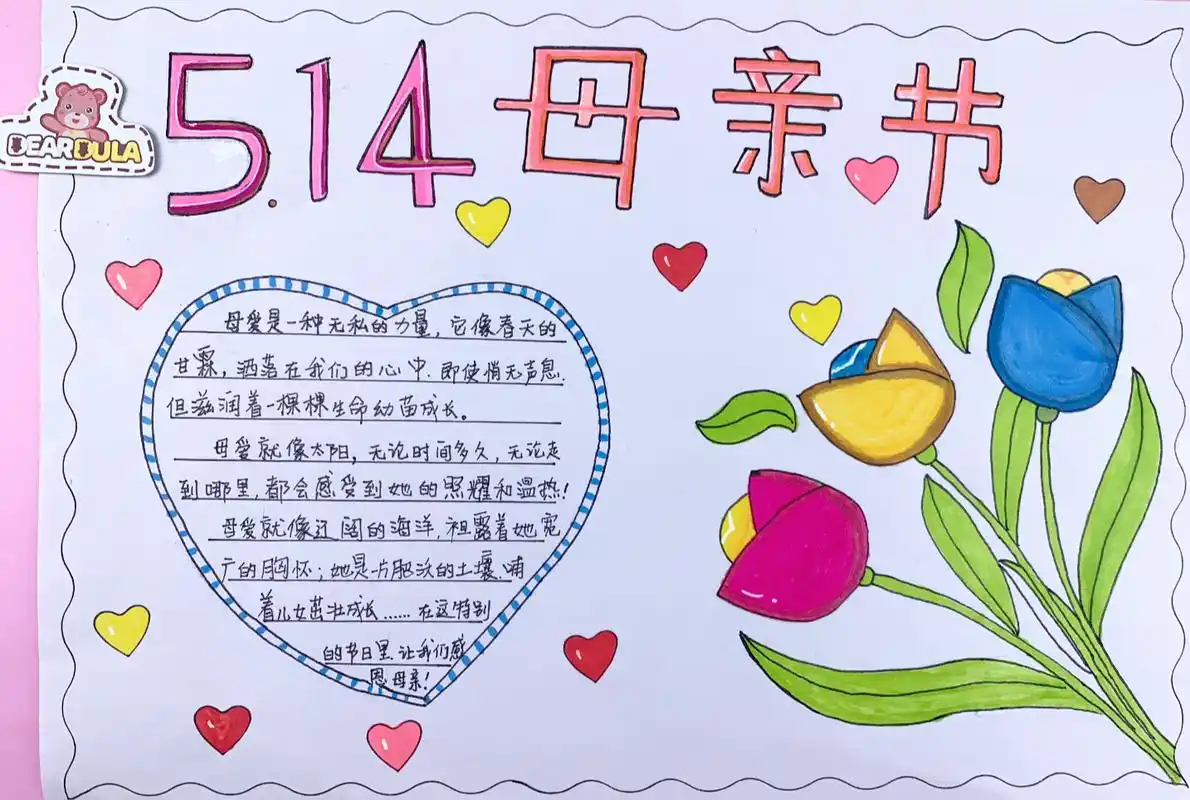 5.14 母亲节
BEARDULA
母爱是一种无私的力量，它像春天的
甘霖，洒落在我们的心中.即使悄无声息.
但滋润着一棵棵生命幼苗成长。
母爱就像太阳，无论时间多久，无论走
到哪里，都会感受到她的照耀和温热！
母爱就像辽阔的海洋，袒露着她宽
广的胸怀；她是一片肥沃的土壤.哺
着儿女茁壮成长……在这特别
的节日里.让我们感
恩母亲！